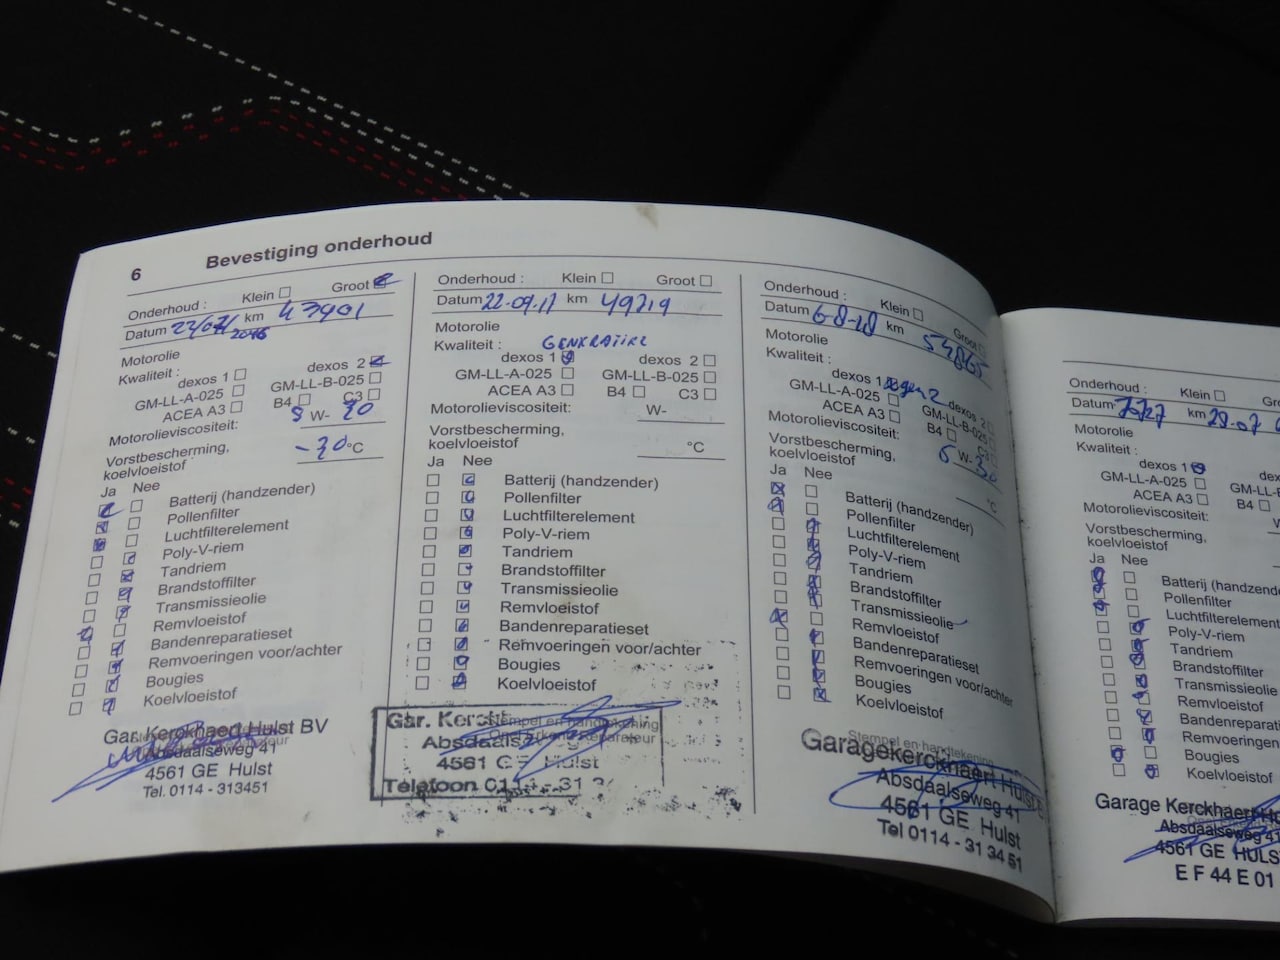 6 Bevestiging onderhoud
Onderhoud : Klein Groot
Datum km 47901
2016
Motorolie
Kwaliteit :
dexos 1 dexos 2
GM-LL-A-025 GM-LL-B-025
ACEA A3 B4 C3
Motorolieviscositeit: 5 W- 30
Vorstbescherming,
koelvloeistof -30 °C
Ja Nee
Batterij (handzender)
Pollenfilter
Luchtfilterelement
Poly-V-riem
Tandriem
Brandstoffilter
Transmissieolie
Remvloeistof
Bandenreparatieset
Remvoeringen voor/achter
Bougies
Koelvloeistof
Gar. Kerckhaert Hulst BV
Absdaalseweg 41
4561 GE Hulst
Tel. 0114 - 313451
Onderhoud : Klein Groot
Datum 22-09-17 km 49719
Motorolie
Kwaliteit :
dexos 1 dexos 2
GM-LL-A-025 GM-LL-B-025
ACEA A3 B4 C3
Motorolieviscositeit: W-
Vorstbescherming,
koelvloeistof °C
Ja Nee
Batterij (handzender)
Pollenfilter
Luchtfilterelement
Poly-V-riem
Tandriem
Brandstoffilter
Transmissieolie
Remvloeistof
Bandenreparatieset
Remvoeringen voor/achter
Bougies
Koelvloeistof
Stempel en handtekening
Opel Erkend Reparateur
Gar.
4561 GE Hulst
Telefoon 0114 - 31
Onderhoud : Klein Groot
Datum 6-8-18 km 54865
Motorolie
Kwaliteit :
dexos 1 gen 2 dexos 2
GM-LL-A-025 GM-LL-B-025
ACEA A3 B4 C3
Motorolieviscositeit: W-30
Vorstbescherming,
koelvloeistof °C
Ja Nee
Batterij (handzender)
Pollenfilter
Luchtfilterelement
Poly-V-riem
Tandriem
Brandstoffilter
Transmissieolie
Remvloeistof
Bandenreparatieset
Remvoeringen voor/achter
Bougies
Koelvloeistof
Stempel en handtekening
Garagekerckhaert Hulst
Absdaalseweg 41
4561 GE Hulst
Tel 0114 - 31 34 51
Onderhoud : Klein
Datum km
Motorolie
Kwaliteit :
dexos 1
GM-LL-A-025
ACEA A3 B4
Motorolieviscositeit:
Vorstbescherming,
koelvloeistof
Ja Nee
Batterij
Pollenfilter
Luchtfilterelement
Poly-V-riem
Tandriem
Brandstoffilter
Transmissieolie
Remvloeistof
Remvoeringen
Bougies
Koelvloeistof
Garage Kerckhaert
Absdaalseweg 41
4561 GE HULS
E F 44 E 01